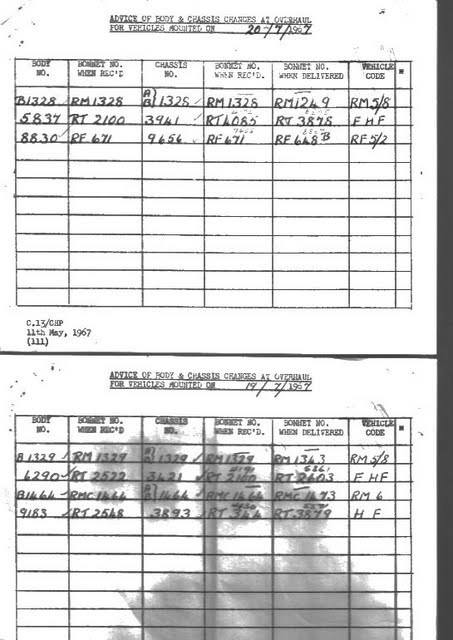 ADVICE OF BODY & CHASSIS CHANGES AT OVERHAUL
FOR VEHICLES MOUNTED ON 20/7/1967
BODY NO. BONNET NO. WHEN REC'D CHASSIS NO. BONNET NO. WHEN REC'D. BONNET NO. WHEN DELIVERED VEHICLE CODE
B1328 RM1328 A/B 1328 RM1328 RM1249 RM5/8
5837 RT 2100 3941 RT4085 RT 3878 F HF
8830 RF 671 9656 RF 671 RF 648 RF5/2
C.13/CHP
11th May, 1967
(111)
ADVICE OF BODY & CHASSIS CHANGES AT OVERHAUL
FOR VEHICLES MOUNTED ON 19/7/1967
BODY NO. BONNET NO. WHEN REC'D CHASSIS NO. BONNET NO. WHEN REC'D. BONNET NO. WHEN DELIVERED VEHICLE CODE
B1329 RM1329 1329 RM1329 RM1343 RM5/8
6290 RT 2522 3421 RT 2160 RT 2603 F HF
B1464 RMC1464 1464 RMC1464 RMC1473 RM 6
9183 RT 2548 3893 RT 344 RT 3879 H F